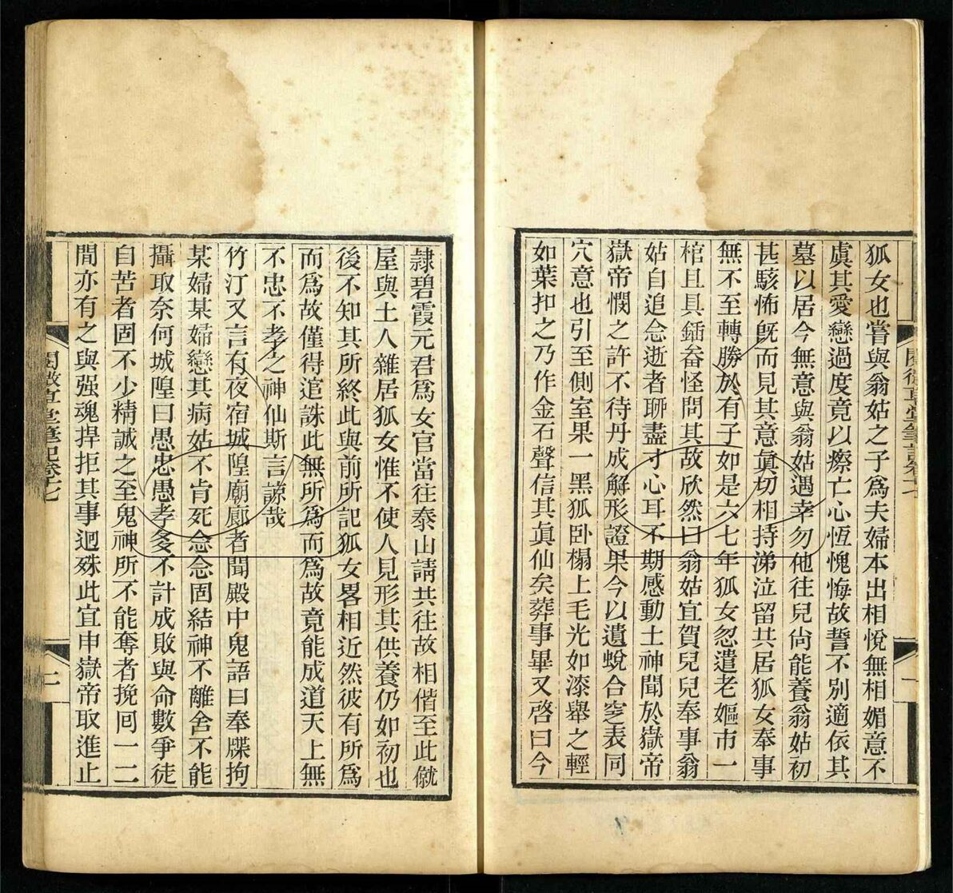 狐女也嘗與翁姑之子爲夫婦本出相悅無相媚意不
虞其愛戀過度竟以瘵亡心恆愧悔故誓不別適依其
墓以居今無意與翁姑遇幸勿他往兒尙能養翁姑初
甚駭怖旣而見其意眞切相持涕泣留共居狐女奉事
無不至轉勝於有子如是六七年狐女忽遣老嫗市一
棺且具鍤畚怪問其故欣然曰翁姑宜賀兒兒奉事翁
姑自追念逝者聊盡寸心耳不期感動土神聞於嶽帝
嶽帝憫之許不待丹成解形證果今以遺蛻合窆表同
穴意也引至側室果一黑狐卧榻上毛光如漆舉之輕
如葉扣之乃作金石聲信其眞仙矣葬事畢又啓曰今
隸碧霞元君爲女官當往泰山請共往故相偕至此僦
屋與土人雜居狐女惟不使人見形其供養仍如初也
後不知其所終此與前所記狐女畧相近然彼有所爲
而爲故僅得逭誅此無所爲而爲故竟能成道天上無
不忠不孝之神仙斯言諒哉
竹汀又言有夜宿城隍廟廊者聞殿中鬼語曰奉牒拘
某婦某婦戀其病姑不肯死念念固結神不離舍不能
攝取奈何城隍曰愚忠愚孝多不計成敗與命數爭徒
自苦者固不少精誠之至鬼神所不能奪者挽囘一二
間亦有之與强魂捍拒其事迥殊此宜申嶽帝取進止
閱微草堂筆記卷十七
二